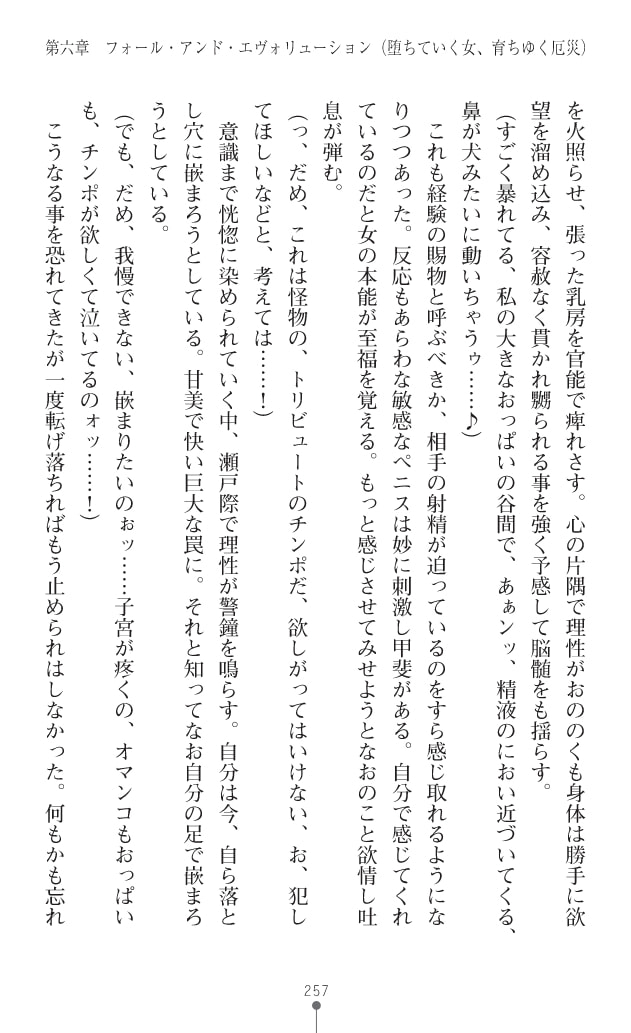 第六章　フォール・アンド・エヴォリューション（堕ちていく女、育ちゆく厄災）
を火照らせ、張った乳房を官能で痺れさす。心の片隅で理性がおののくも身体は勝手に欲
望を溜め込み、容赦なく貫かれ嬲られる事を強く予感して脳髄をも揺らす。
（すごく暴れてる、私の大きなおっぱいの谷間で、あぁンッ、精液のにおい近づいてくる、
鼻が犬みたいに動いちゃうゥ……♪）
　これも経験の賜物と呼ぶべきか、相手の射精が迫っているのをすら感じ取れるようにな
りつつあった。反応もあらわな敏感なペニスは妙に刺激し甲斐がある。自分で感じてくれ
ているのだと女の本能が至福を覚える。もっと感じさせてみせようとなおのこと欲情し吐
息が弾む。
（っ、だめ、これは怪物の、トリビュートのチンポだ、欲しがってはいけない、お、犯し
てほしいなどと、考えては……！）
　意識まで恍惚に染められていく中、瀬戸際で理性が警鐘を鳴らす。自分は今、自ら落と
し穴に嵌まろうとしている。甘美で快い巨大な罠に。それと知ってなお自分の足で嵌まろ
うとしている。
（でも、だめ、我慢できない、嵌まりたいのぉッ……子宮が疼くの、オマンコもおっぱい
も、チンポが欲しくて泣いてるのォッ……！）
　こうなる事を恐れてきたが一度転げ落ちればもう止められはしなかった。何もかも忘れ
257